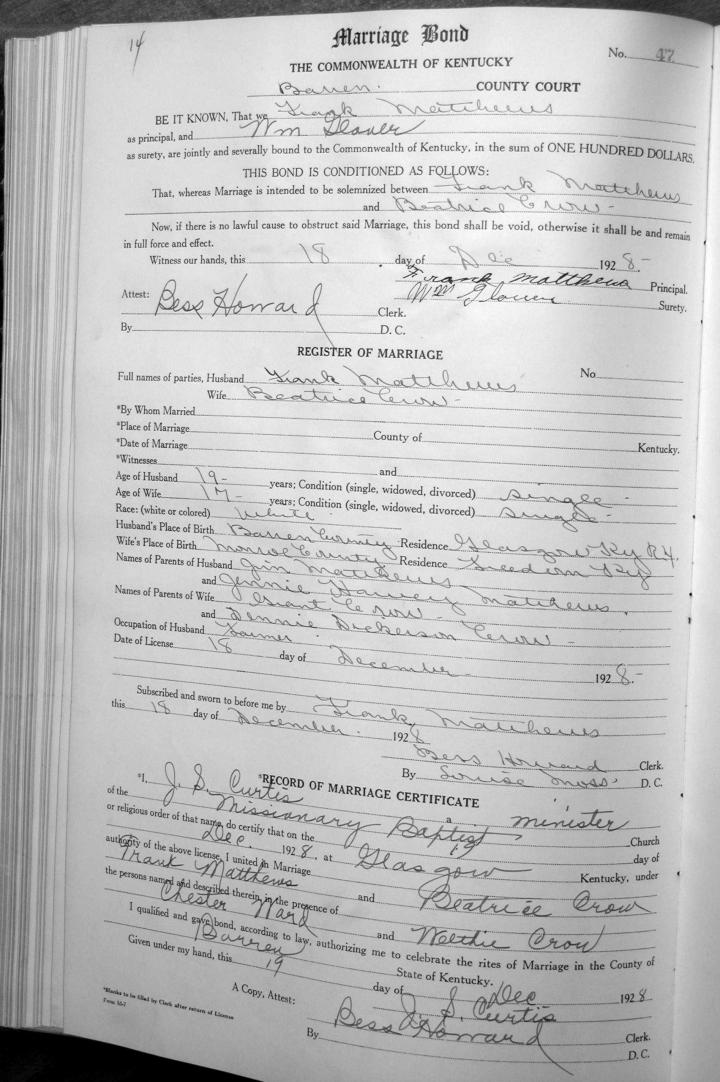 14
Marriage Bond
No. 47
THE COMMONWEALTH OF KENTUCKY
Barren COUNTY COURT
BE IT KNOWN, That we Frank Matthews
as principal, and Wm Glover
as surety, are jointly and severally bound to the Commonwealth of Kentucky, in the sum of ONE HUNDRED DOLLARS.
THIS BOND IS CONDITIONED AS FOLLOWS:
That, whereas Marriage is intended to be solemnized between Frank Matthews
and Beatrice Crow
Now, if there is no lawful cause to obstruct said Marriage, this bond shall be void, otherwise it shall be and remain
in full force and effect.
Witness our hands, this 18 day of Dec 1928.
Frank Matthews Principal.
Wm Glover Surety.
Attest: Bess Howard Clerk.
By D. C.
REGISTER OF MARRIAGE
Full names of parties, Husband Frank Matthews No
Wife Beatrice Crow
*By Whom Married
*Place of Marriage County of Kentucky.
*Date of Marriage
*Witnesses and
Age of Husband 19 years; Condition (single, widowed, divorced) single
Age of Wife 17 years; Condition (single, widowed, divorced) single
Race: (white or colored) White
Husband's Place of Birth Barren County Residence Glasgow Ky R4.
Wife's Place of Birth Monroe County Residence Freedom Ky
Names of Parents of Husband Jim Matthews
and Jennie Harvey Matthews.
Names of Parents of Wife Grant Crow
and Dennie Dickerson Crow
Occupation of Husband Farmer
Date of License 18 day of December 1928.
Subscribed and sworn to before me by Frank Matthews
this 18 day of December. 1928
Bess Howard Clerk.
By Louise Moss D. C.
*RECORD OF MARRIAGE CERTIFICATE
*I, J. S. Curtis a minister
of the Missionary Baptist Church
or religious order of that name, do certify that on the 19 day of
Dec. 1928. at Glasgow Kentucky, under
authority of the above license, I united in Marriage
Frank Matthews and Beatrice Crow
the persons named and described therein, in the presence of
Chester Ward and Welthie Crow
I qualified and gave bond, according to law, authorizing me to celebrate the rites of Marriage in the County of
Barren State of Kentucky.
Given under my hand, this 19 day of Dec 1928
J. S. Curtis
A Copy, Attest: Bess Howard Clerk.
By D. C.
*Blanks to be filled by Clerk after return of License